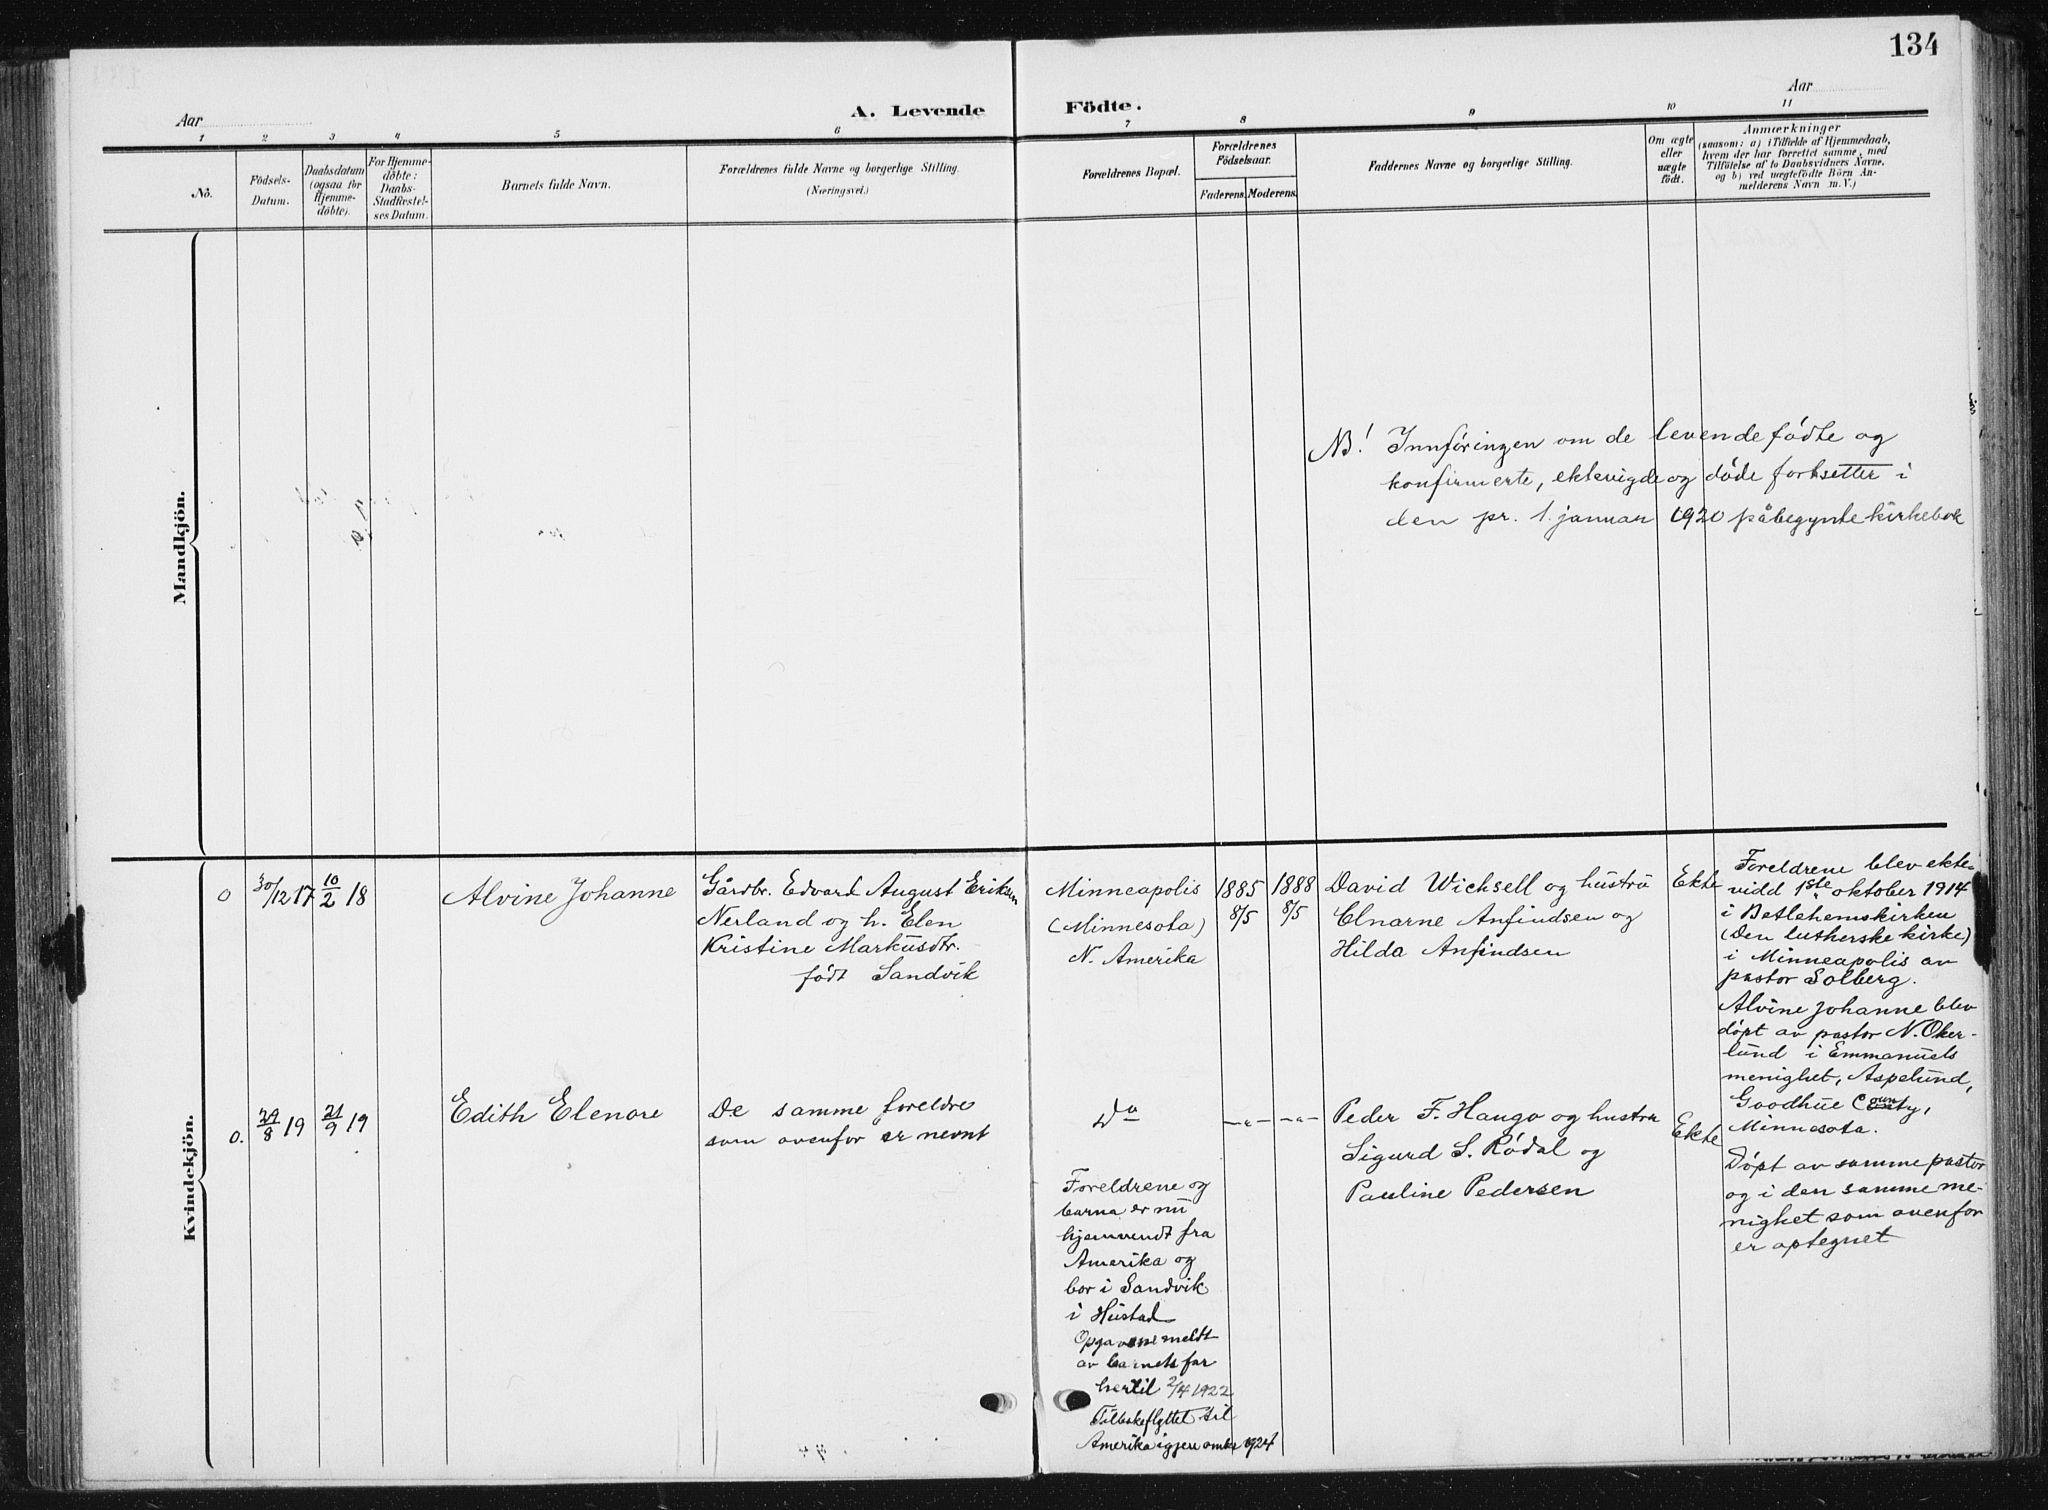 134
Aar
A. Levende Födte.
Aar
1 2 3 4 5 6 7 8 9 10 11
No.
Födsels-
Datum.
Daabsdatum
(ogsaa for
Hjemme-
döbte).
For Hjemme-
döbte:
Daabs-
Stadfæstel-
ses Datum.
Barnets fulde Navn.
Forældrenes fulde Navne og borgerlige Stilling.
(Næringsvei.)
Forældrenes Bopæl.
Forældrenes
Födselsaar.
Faderens. Moderens.
Faddernes Navne og borgerlige Stilling.
Om ægte
eller
uægte
födt.
Anmærkninger
(saasom: a) i Tilfælde af Hjemmedaab,
hvem der har forrettet samme, med
Tilföielse af to Daabsvidners Navne,
og b) ved uegtefödte Börn An-
melderens Navn m. V.)
Mandkjön.
NB! Innføringen om de levendefødte og
konfirmerte, ektevigde og døde fortsetter i
den pr. 1. januar 1920 påbegynte kirkebok
Kvindekjön.
0
30/12 17
10/2 18
Alvine Johanne
Gårdbr. Edvard August Eriksen
Nerland og h. Elen
Kristine Markusdtr.
født Sandvik
Minneapolis
(Minnesota)
N. Amerika
1885
8/5
1888
8/5
David Wicksell og hustru
Elnarne Anfindsen og
Hilda Anfindsen
Ekte
Foreldrene blev ekte-
vidd 1ste oktober 1914
i Betlehemskirken
(Den lutherske kirke)
i Minneapolis av
pastor Solberg.
Alvine Johanne blev
døpt av pastor N. Oker-
lund i Emmanuels
menighet, Aspelund,
Goodhue County,
Minnesota.
0.
29/8 19
21/9 19
Edith Elenore
De samme foreldre
som ovenfor er nevnt
Do
-"-
-"-
Peder F. Haugo og hustru
Sigurd S. Rødal og
Pauline Pedersen
Ekte
Døpt av samme pastor
og i den samme me-
nighet som ovenfor
er optegnet
Foreldrene og
barna er nu
hjemvendt fra
Amerika og
bor i Sandvik
i Hustad
Opgavene meldt
av barnets far
hertil 2/4 1922
Tilbakeflyttet til
Amerika igjen omkr 1924